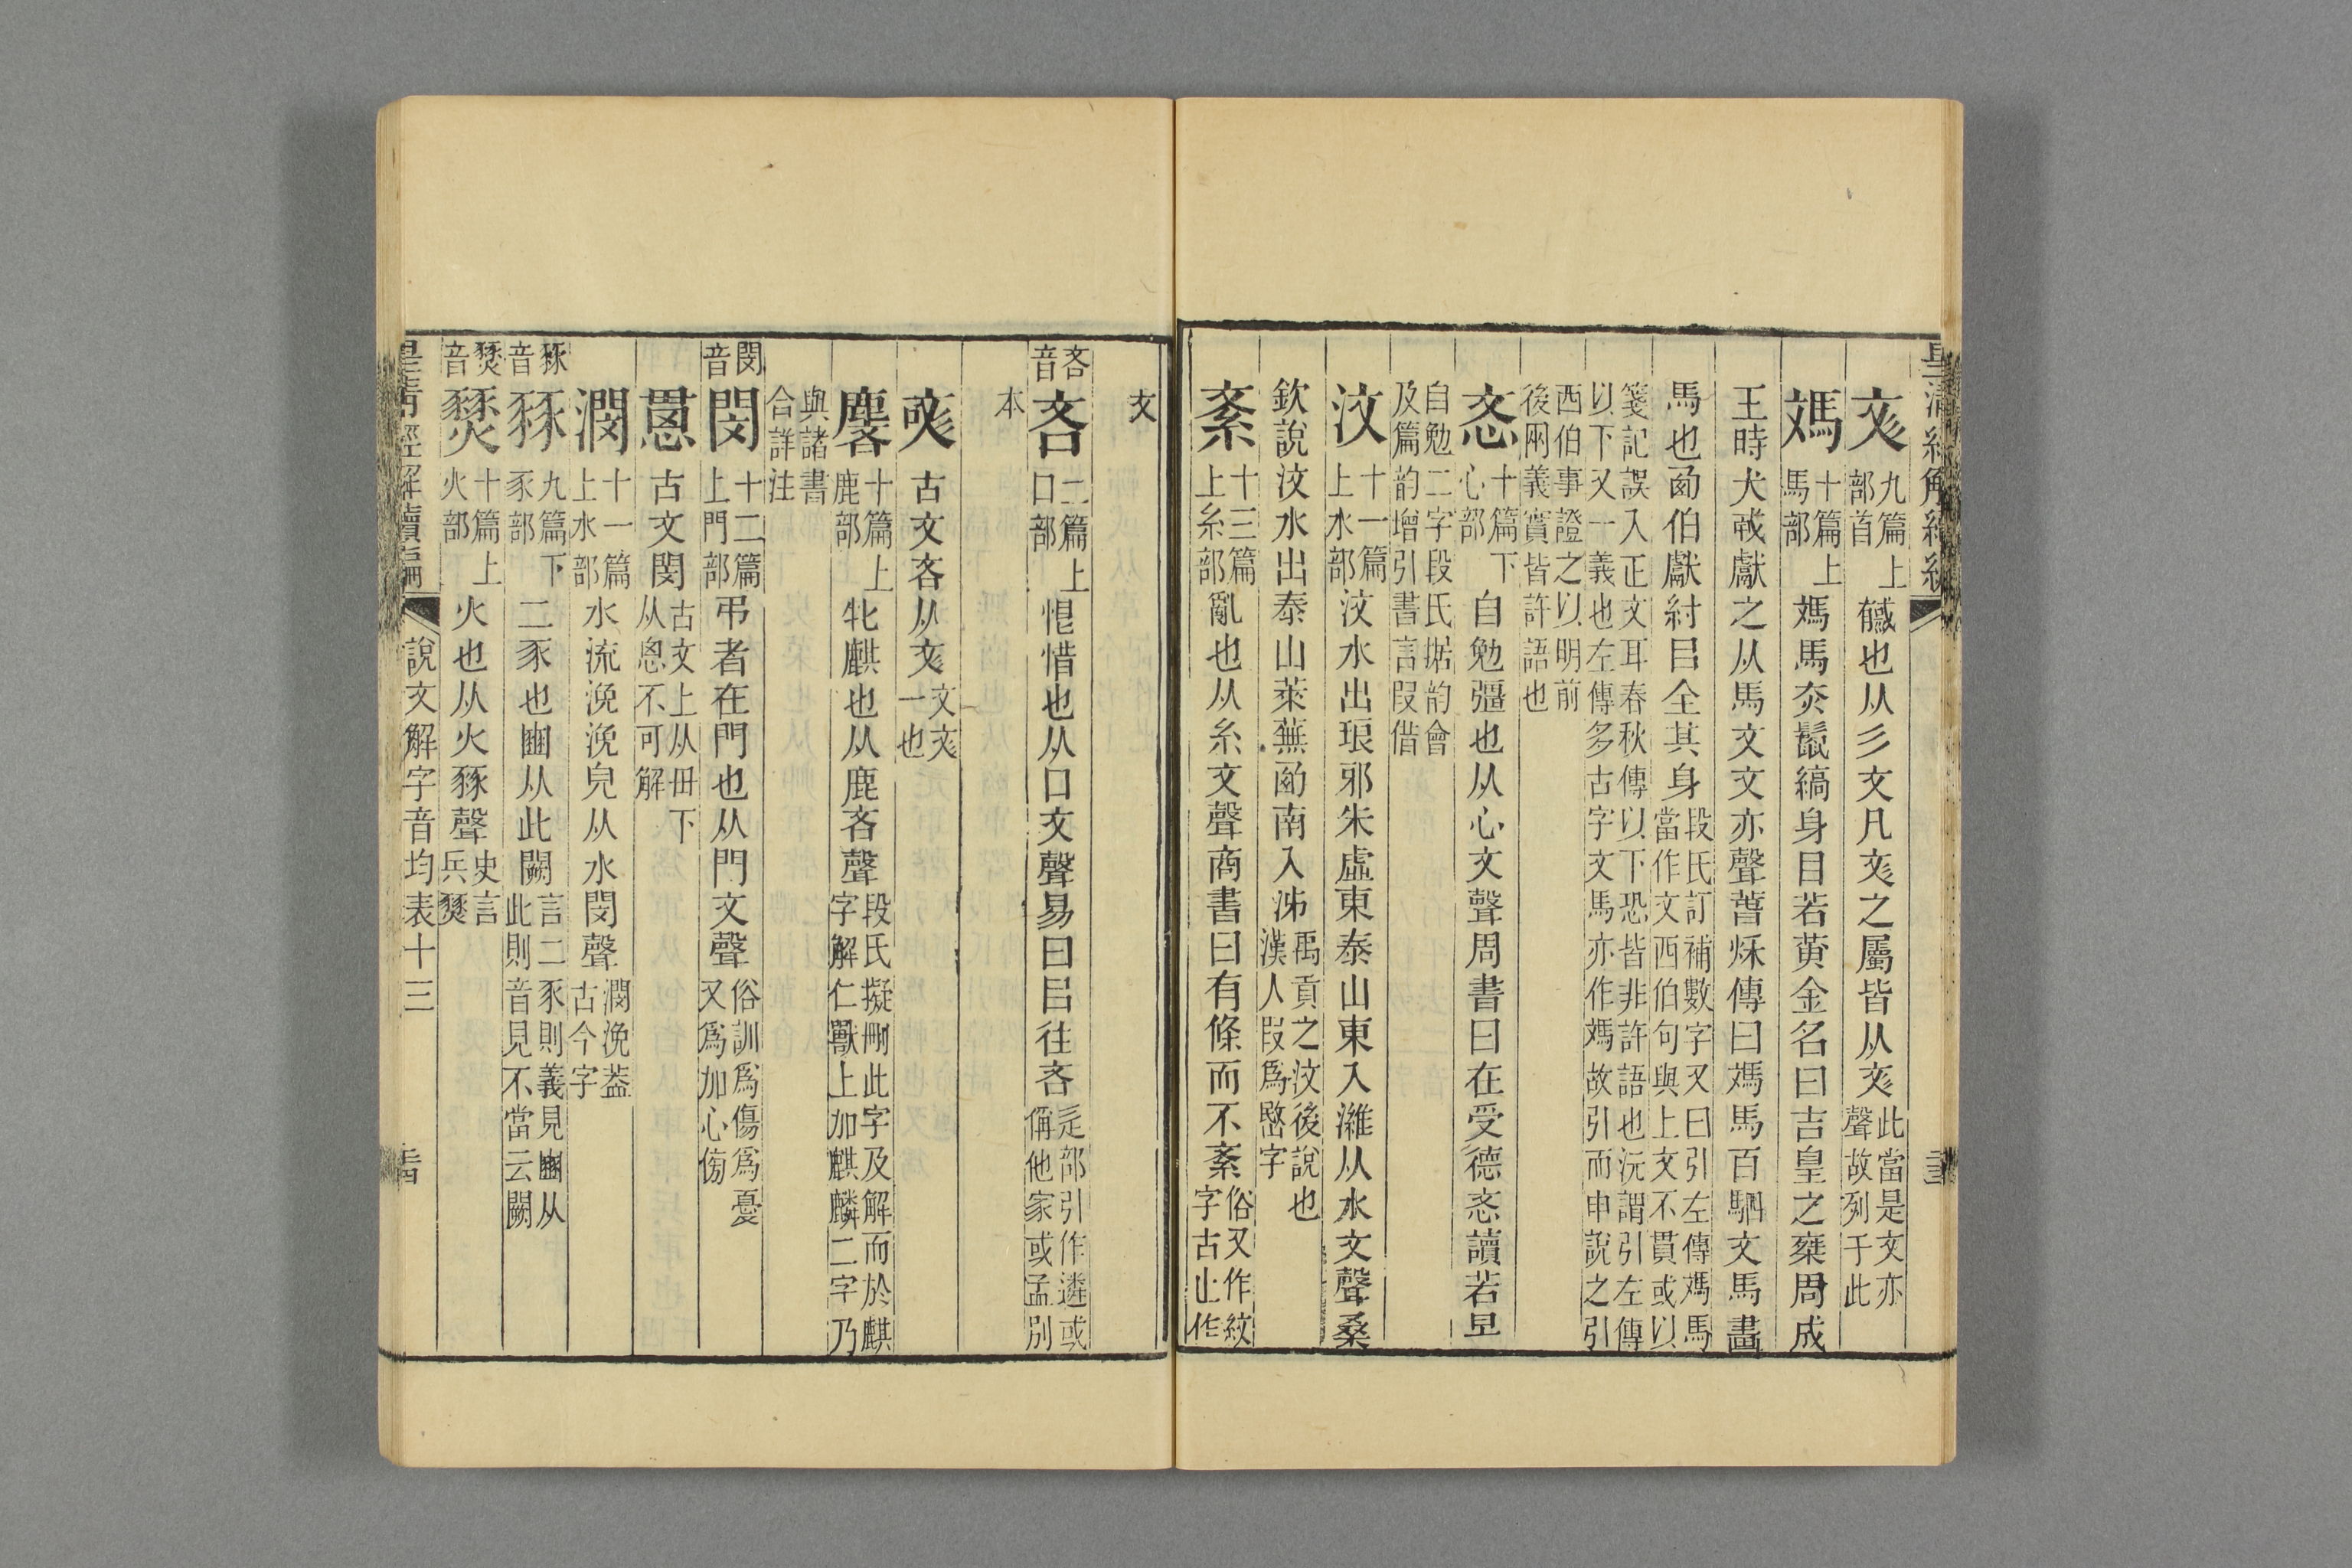 皇清經解續編
彣九篇上部首𢒰也从彡文凡彣之屬皆从彣此當是文亦聲故列于此
媽十篇上馬部媽馬赤鬣縞身目若黄金名曰吉皇之椉周成
王時犬戎獻之从馬文文亦聲萅秌傳曰媽馬百駟文馬畫
馬也㢴伯獻紂㠯全其身段氏訂補數字又曰引左傳媽馬當作文西伯句與上文不貫或以
箋記誤入正文耳春秋傳以下恐皆非許語也沅謂引左傳以下又一義也左傳多古字文馬亦作媽故引而申說之引
西伯事證之以明前後兩義實皆許語也
忞十篇下心部自勉彊也从心文聲周書曰在受德忞讀若旻
自勉二字段氏据韵會及篇韵增引書言叚偕
汶十一篇上水部汶水出琅邪朱虛東泰山東入濰从水文聲桑
欽說汶水出泰山萊蕪㢴南入泲禹貢之汶後說也漢人叚爲㟭字
紊十三篇上糸部亂也从糸文聲商書曰有條而不紊俗又作紋字古止作
文
吝音
吝二篇上口部恨惜也从口文聲易曰㠯往吝辵部引作遴或偁他家或孟別
本
㖁古文吝从彣文彣一也
麐十篇上鹿部牝麒也从鹿吝聲段氏擬刪此字及解而於麒字解仁獸上加麒麟二字乃
與諸書合詳注
閔音
閔十二篇上門部弔者在門也从門文聲俗訓爲傷爲憂又爲加心㥃
㥸古文閔古文上从毌下从恩不可解
潣十一篇上水部水流浼浼皃从水閔聲潣浼葢古今字
豩音
豩九篇下豕部二豕也豳从此闕言二豕則義見豳从此則音見不當云闕
燹音
燹十篇上火部火也从火豩聲史言兵燹
皇清經解續編
說文解字音均表十三